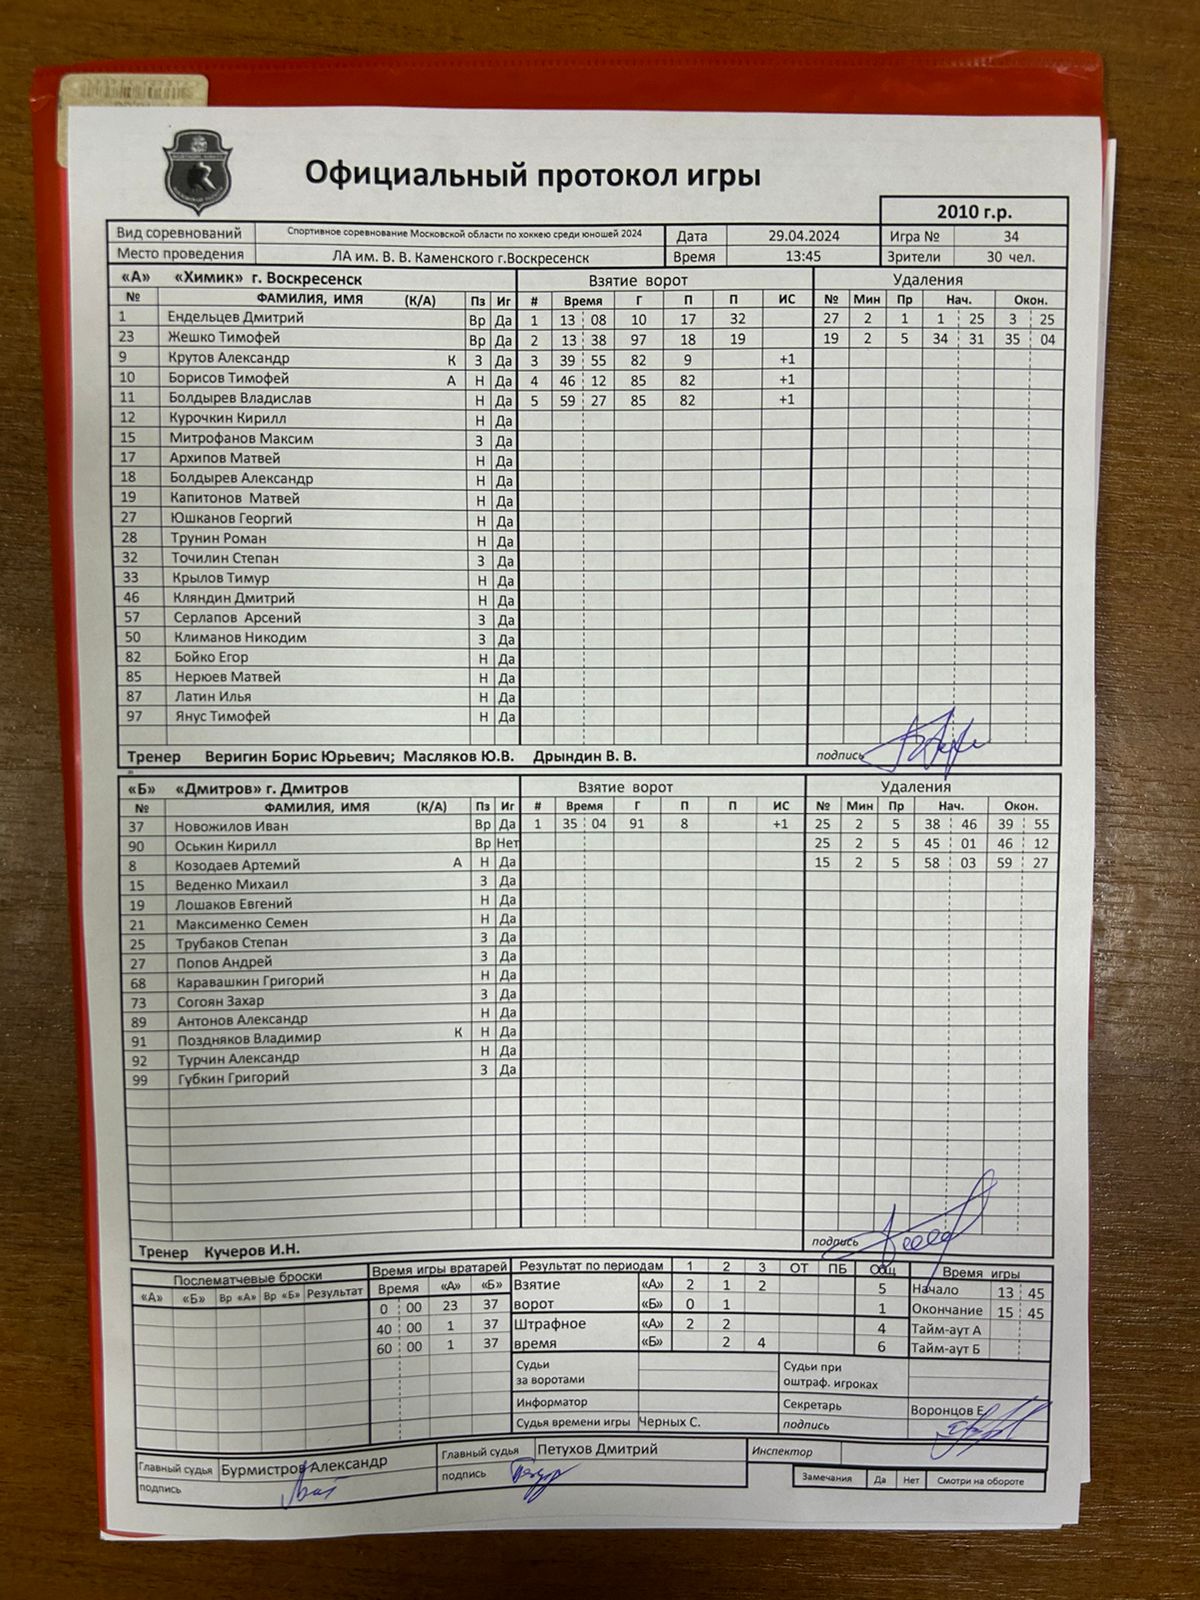 Официальный протокол игры
2010 г.р.
Вид соревнований Спортивное соревнование Московской области по хоккею среди юношей 2024 Дата 29.04.2024 Игра № 34
Место проведения ЛА им. В. В. Каменского г.Воскресенск Время 13:45 Зрители 30 чел.
«А» «Химик» г. Воскресенск Взятие ворот Удаления
№ ФАМИЛИЯ, ИМЯ (К/А) Пз Иг # Время Г П П ИС № Мин Пр Нач. Окон.
1 Ендельцев Дмитрий Вр Да 1 13 08 10 17 32 27 2 1 1 25 3 25
23 Жешко Тимофей Вр Да 2 13 38 97 18 19 19 2 5 34 31 35 04
9 Крутов Александр К З Да 3 39 55 82 9 +1
10 Борисов Тимофей А Н Да 4 46 12 85 82 +1
11 Болдырев Владислав Н Да 5 59 27 85 82 +1
12 Курочкин Кирилл Н Да
15 Митрофанов Максим З Да
17 Архипов Матвей Н Да
18 Болдырев Александр Н Да
19 Капитонов Матвей Н Да
27 Юшканов Георгий Н Да
28 Трунин Роман Н Да
32 Точилин Степан З Да
33 Крылов Тимур Н Да
46 Кляндин Дмитрий Н Да
57 Серлапов Арсений З Да
50 Климанов Никодим З Да
82 Бойко Егор Н Да
85 Нерюев Матвей Н Да
87 Латин Илья Н Да
97 Янус Тимофей Н Да
Тренер Веригин Борис Юрьевич; Масляков Ю.В. Дрындин В. В. подпись
«Б» «Дмитров» г. Дмитров Взятие ворот Удаления
№ ФАМИЛИЯ, ИМЯ (К/А) Пз Иг # Время Г П П ИС № Мин Пр Нач. Окон.
37 Новожилов Иван Вр Да 1 35 04 91 8 +1 25 2 5 38 46 39 55
90 Оськин Кирилл Вр Нет 25 2 5 45 01 46 12
8 Козодаев Артемий А Н Да 15 2 5 58 03 59 27
15 Веденко Михаил З Да
19 Лошаков Евгений Н Да
21 Максименко Семен Н Да
25 Трубаков Степан З Да
27 Попов Андрей З Да
68 Каравашкин Григорий Н Да
73 Согоян Захар З Да
89 Антонов Александр Н Да
91 Поздняков Владимир К Н Да
92 Турчин Александр Н Да
99 Губкин Григорий З Да
Тренер Кучеров И.Н. подпись
Послематчевые броски Время игры вратарей Результат по периодам 1 2 3 ОТ ПБ Общ Время игры
«А» «Б» Вр «А» Вр «Б» Результат Время «А» «Б» Взятие «А» 2 1 2 5 Начало 13 45
0 00 23 37 ворот «Б» 0 1 1 Окончание 15 45
40 00 1 37 Штрафное «А» 2 2 4 Тайм-аут А
60 00 1 37 время «Б» 2 4 6 Тайм-аут Б
Судьи за воротами Судьи при оштраф. игроках
Информатор Секретарь Воронцов Е.
Судья времени игры Черных С. подпись
Главный судья Бурмистров Александр Главный судья Петухов Дмитрий Инспектор
подпись подпись Замечания Да Нет Смотри на обороте